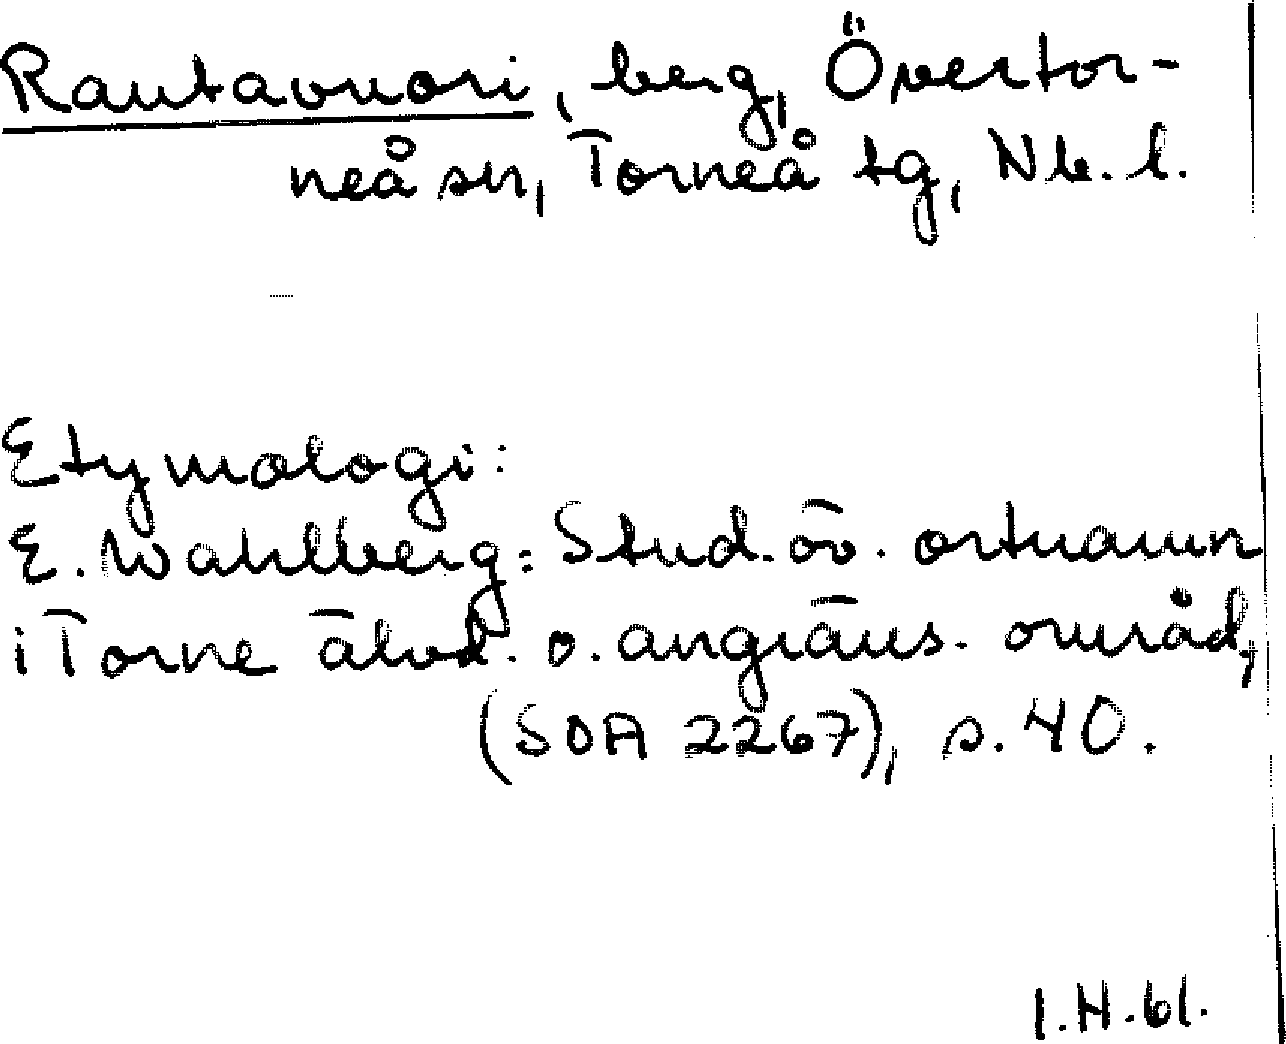 Rautavuori, berg, Övertor-
neå sn, Torneå tg, Nb. l.
Etymologi:
E. Wahlberg: Stud. öv. ortnamn
i Torne älvd. o. angräns. områd,
(SOA 2267), s. 40.
I.H.61.